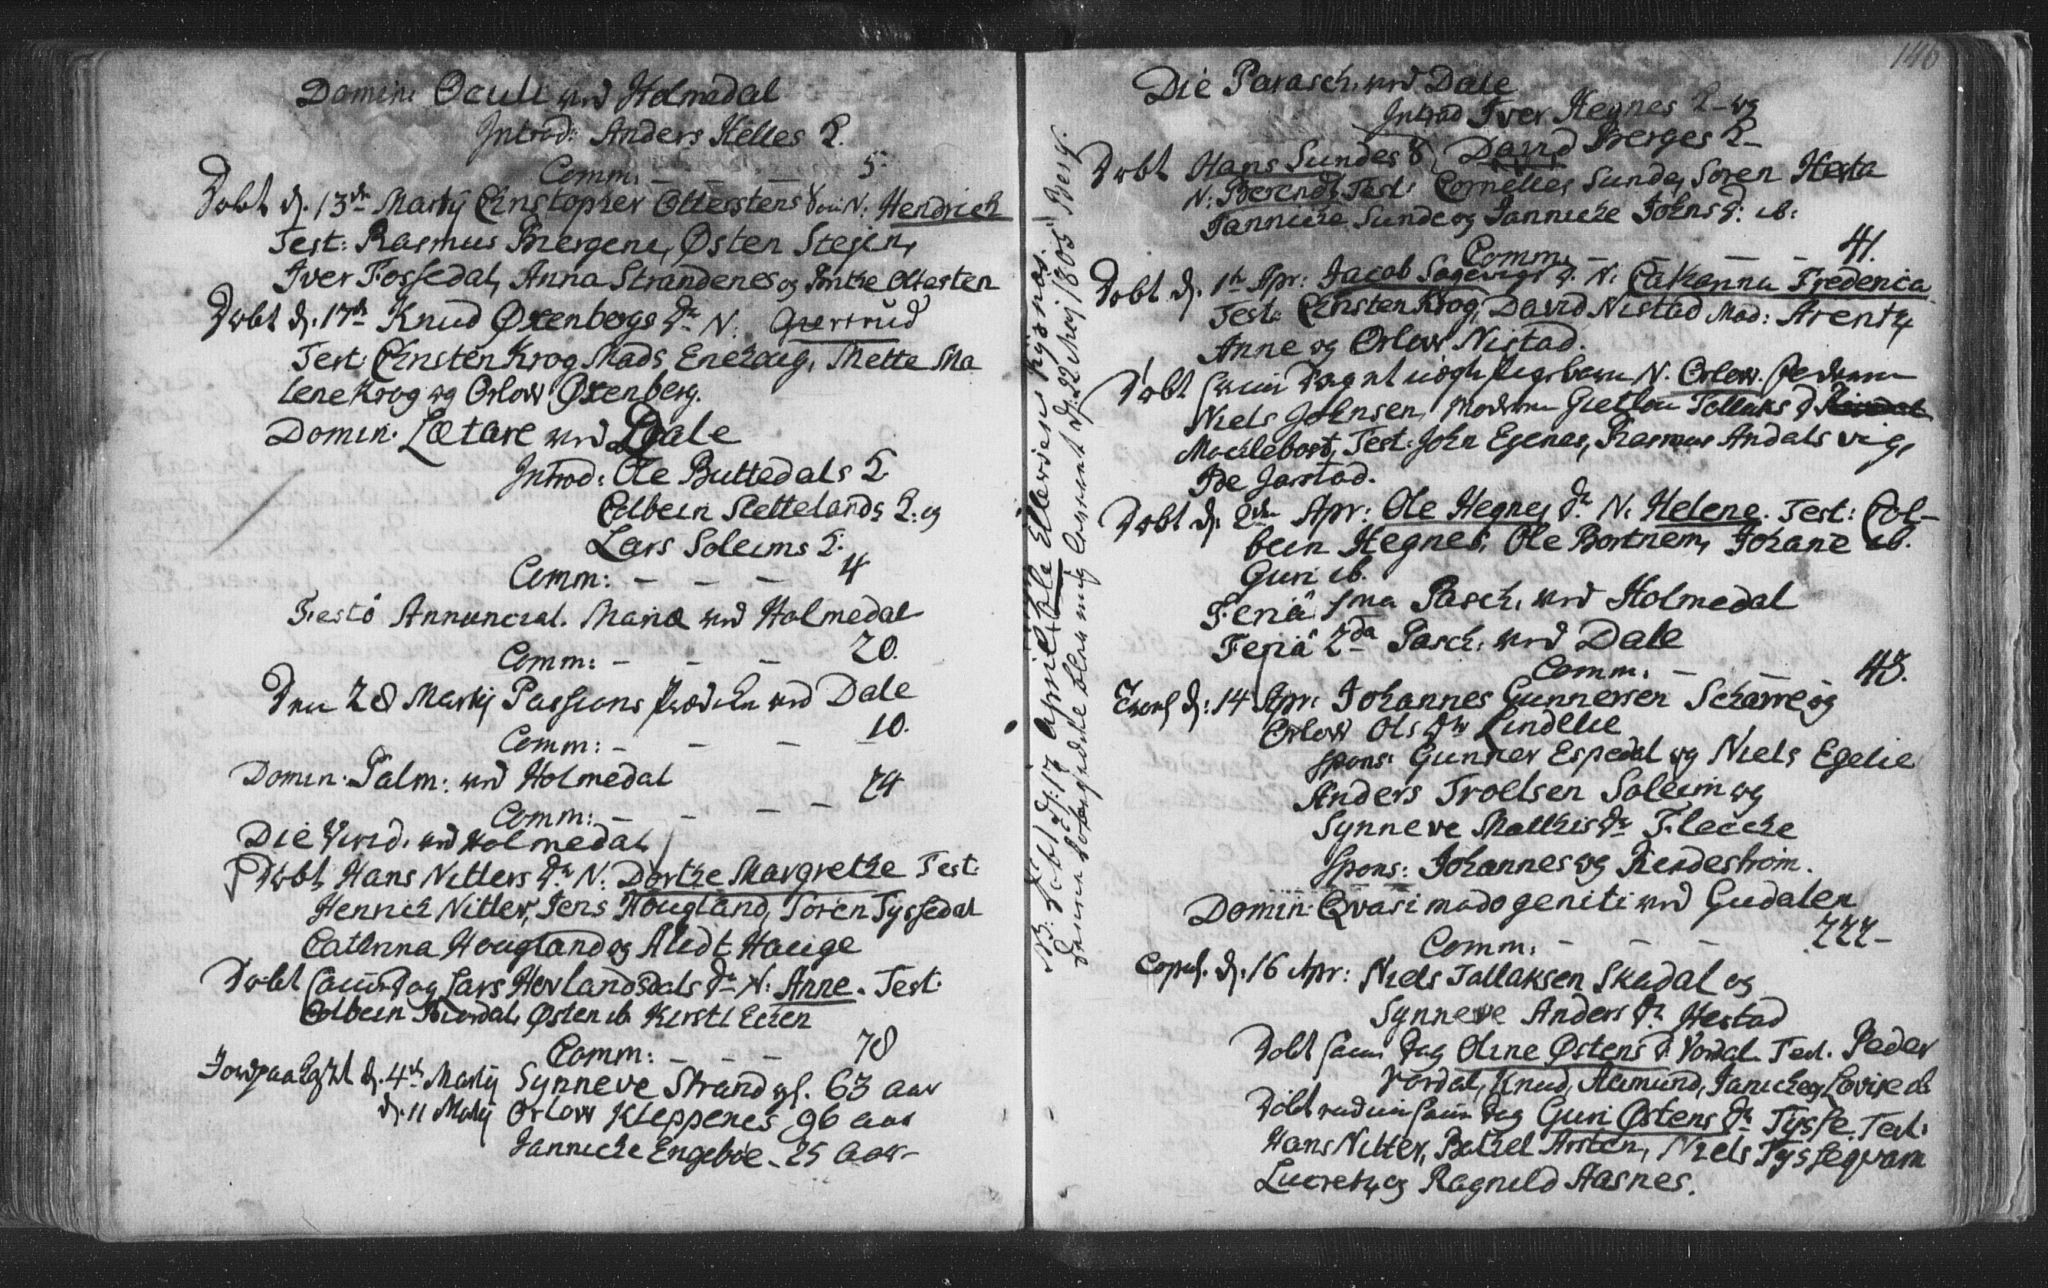 Domin: Oculi ved Holmedal
Introd: Anders Helles K.
Comm: - - - 5.
Døbt d. 13de Martij Christopher Otterstens N: Hendrich
Test: Rasmus Bergene, Østen Stejen,
Iver Fossedal, Anna Strandenes og Ottersten
Døbt d. 17de Knud Oxenbergs Dr N. Giertrud
Test: Christen Krog, Mads Enehaug, Mette Ma
lene Krog og Orlow Oxenberg.
Domin. Lætare ved Dale
Introd: Ole Buttedals K.
Colbein Slettelands K. og
Lars Soleims K.
Comm: - - - 4
Festo Annunciat. Mariæ ved Holmedal
Comm: - - - 20.
Den 28 Martij Passions Prædiken ved Dale
Comm: - - - 10.
Domin. Palm: ved Holmedal
Comm: - - - 74
Die Virid. ved Holmedal
Døbt Hans Nitters Dr N: Dorthe Margrethe Test:
Henrich Nitter, Jens Hougland, Søren Tyssedal
Cathrina Hougland og Alidt Hauge
Døbt samme Dag Lars Hovlandsdals Dr N: Anne. Test:
Colbein Rivedal, Østen ib. Kirsti Eien
Comm: - - - 78
Jordpaakastet d. 4de Martij Synneve Strand gl. 63 aar
d. 11 Martij Orlow Kleppenes 96 aar
Jannicke Engebøe - 25 Aar -
NB. Døbt d. 17 April Ole Ellersen Kysnæs
denne forhen mig berent d. 22 Maj 1805 Berg.
146
Die Parasch. ved Dale
Introd Iver Hegnes K - og
David Berges K -
Døbt Hans Sundes
N: Berendt, Test: Cornelius Sunde, Søren Hesta
Jannicke Sunde og Jannicke Johns D. ib:
Comm: - - - 41.
Døbt d. 1te Apr: Jacob Sagevigs D. N: Catharina Frederica
Test: Christen Krog, David Nistad Mad: Arentz
Anne og Orlow Nistad.
Døbt samme Dag et uægte Pigebarn N. Orlow.
Niels Johnsen, Moderen Giertrou Tollaks D
Macklebost, Test: John Egenes, Rasmus Andalsvig,
Jarstad.
Døbt d. 2den Apr: Ole Hegnes Dr N: Helene. Test: Col-
bein Hegnes, Ole Bortnem, Johane ib.
Guri ib.
Feria 1ma Pasch. ved Holmedal
Feria 2da Pasch. ved Dale
Comm. - - 43.
d: 14 Apr: Johannes Gunnersen Scharre og
Orlow Ols Dr Lindelie
Spons: Gunner Espedal og Niels Egelie
Anders Troelsen Soleim og
Synneve Matthis Dr Flecke
Spons: Johannes og Rendestrøm.
Domin: Qvasimodogeniti ved Gudalen
Comm: - - - 777 -
Copul. d. 16 Apr: Niels Tollaksen Skudal og
Synneve Anders Dr Hestad
Døbt samme Dag Oline Østens D Vordal. Test. Peder
Vordal, Knud, Aamund, Janiche og Lovise ib
Døbt samme Dag Guri Østens Dr Tysse. Test:
Hans Nitter, Bothel Arsten, Niels Tysseqvam
Lucretz og Ragnild Aasnes.